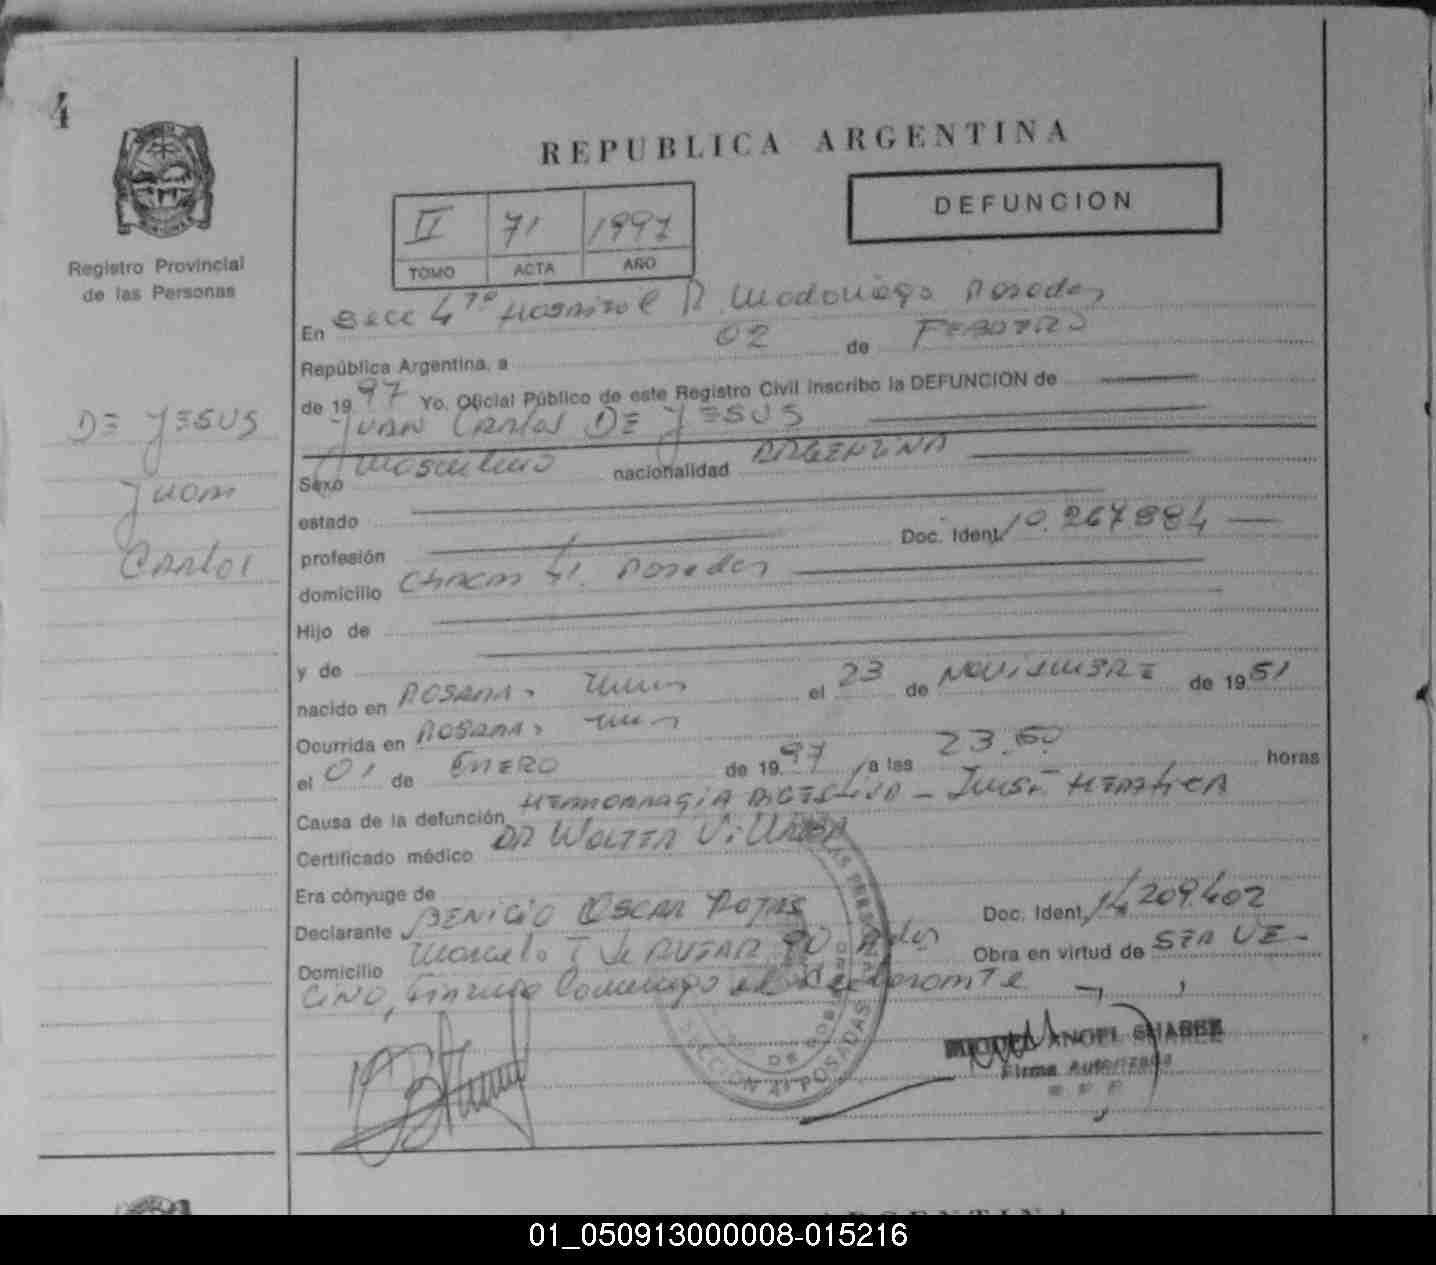 4
REPUBLICA ARGENTINA
DEFUNCION
II 71 1997
TOMO ACTA AÑO
Registro Provincial
de las Personas
DE JESUS
Juan
Carlos
En Secc 4ta Hospital R. Madariaga Posadas
República Argentina, a 02 de FEBRERO
de 1997 Yo, Oficial Público de este Registro Civil inscribo la DEFUNCION de
JUAN CARLOS DE JESUS
Sexo Masculino nacionalidad ARGENTINA
estado
profesión Doc. Ident. 10.267.884
domicilio CHACRA 51. Posadas
Hijo de
y de
nacido en POSADAS, el 23 de NOVIEMBRE de 1951
Ocurrida en POSADAS,
el 01 de ENERO de 1997 a las 23.50 horas
Causa de la defunción HEMORRAGIA DIGESTIVA - INSF. HEPATICA
Certificado médico DR WALTER VILLALBA
Era cónyuge de
Declarante BENICIO OSCAR ROJAS Doc. Ident. 14.209.402
Domicilio Marcelo T de ALVEAR Pdas Obra en virtud de SER VE-
CINO, Firmando Conmigo el declarante
SECCION 4ª POSADAS
MIGUEL ANGEL SUAREZ
Firma Autorizada
R P P
ARGENTINA
01_050913000008-015216